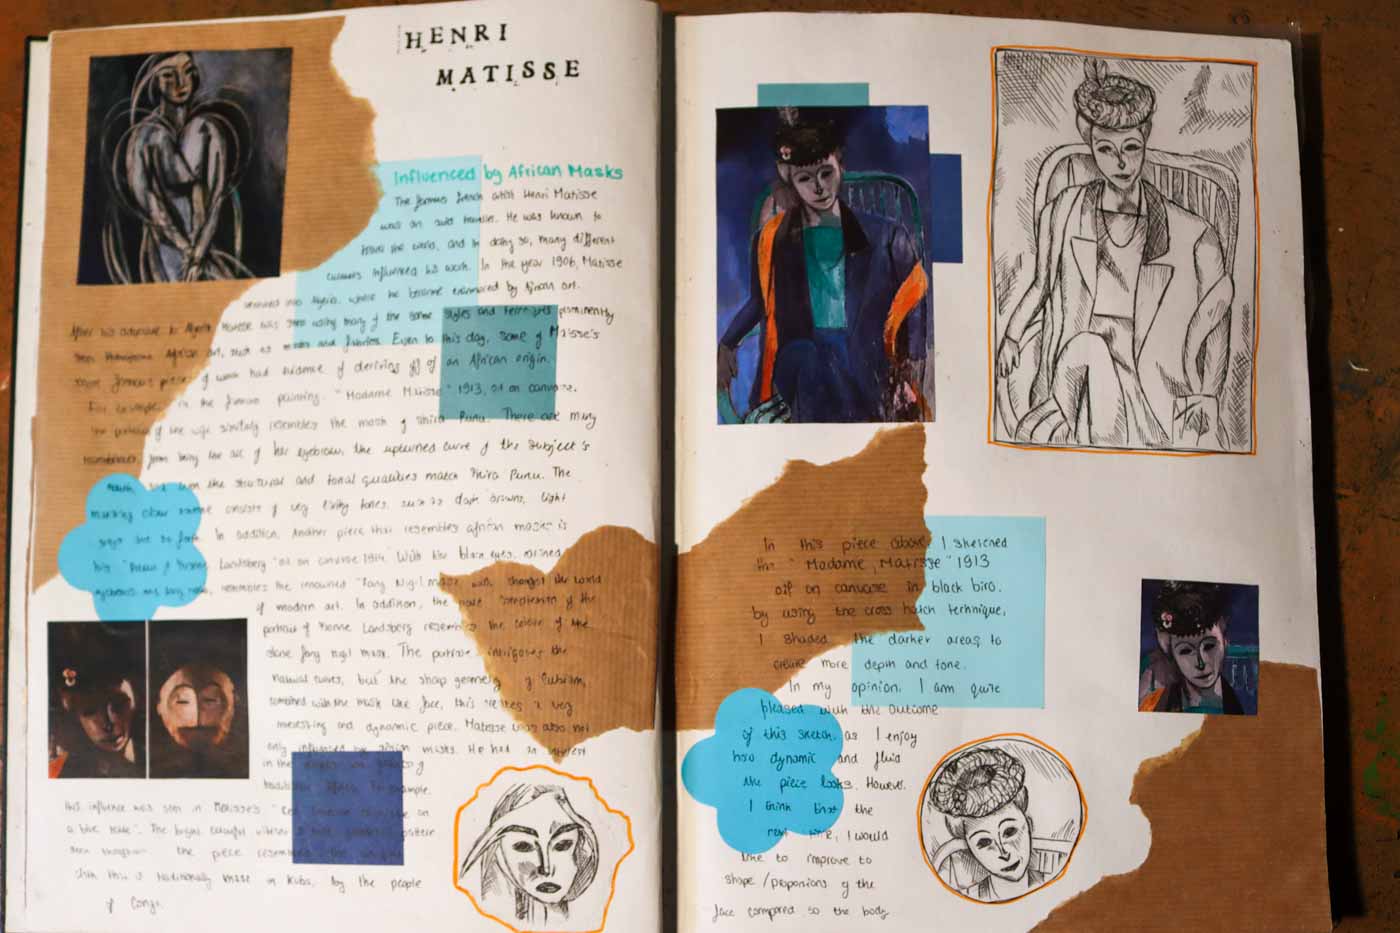 HENRI
MATISSE
Influenced by African Masks
The famous french artist Henri Matisse
was an avid traveler. He was known to
travel the world, and in doing so, many different
cultures influenced his work. In the year 1906, Matisse
ventured into Algeria, where he became entranced by African art.
After his adventure to Algeria Matisse was seen using many of the same styles and prominently
seen throughout African art, such as masks and fabrics. Even to this day, some of Matisse's
most famous pieces of work had evidence of deriving off of an African origin.
For example, in the famous painting. "Madame Matisse" 1913, oil on canvase.
the portrait of the wife similarly resembles the mask of Shira Punu. There are many
from being the arc of her eyebrows, the upturned curve of the subject's
mouth, and even the structural and tonal qualities match Shira Punu. The
matching colour scheme consists of very earthy tones, such as dark browns, light
In addition. Another piece that resembles african masks is
his "Yvonne Landsberg" oil on canvase 1914. With the blank eyes,
eyebrows and long nose, resembles the renowned "Fang Ngil mask" with changed the world
of modern art. In addition, the pale complexion of the
portrait of Yvonne Landsberg resembles the colour of the
stone fang ngil mask. The portrait intrigues the
natural curves, but the sharp geometry of Cubism,
combined with the mask like face, this creates a very
interesting and dynamic piece. Matisse was also not
only influenced by african masks. He had an interest
in the
traditional Africa. For example.
this influence was seen in Matisse's "
a blue table". The bright colourful pattern
seen throughout the piece resembles the
cloth this is traditionally made in Kuba, by the people
of Congo.
In this piece above I sketched
the "Madame, Matisse" 1913
oil on canvase in black biro.
by using the cross hatch technique,
I shaded the darker areas to
create more depth and tone.
In my opinion. I am quite
pleased with the outcome
of this sketch. as I enjoy
how dynamic and fluid
the piece looks. However.
I think that the
next time, I would
like to improve to
shape / proportions of the
face compared to the body.